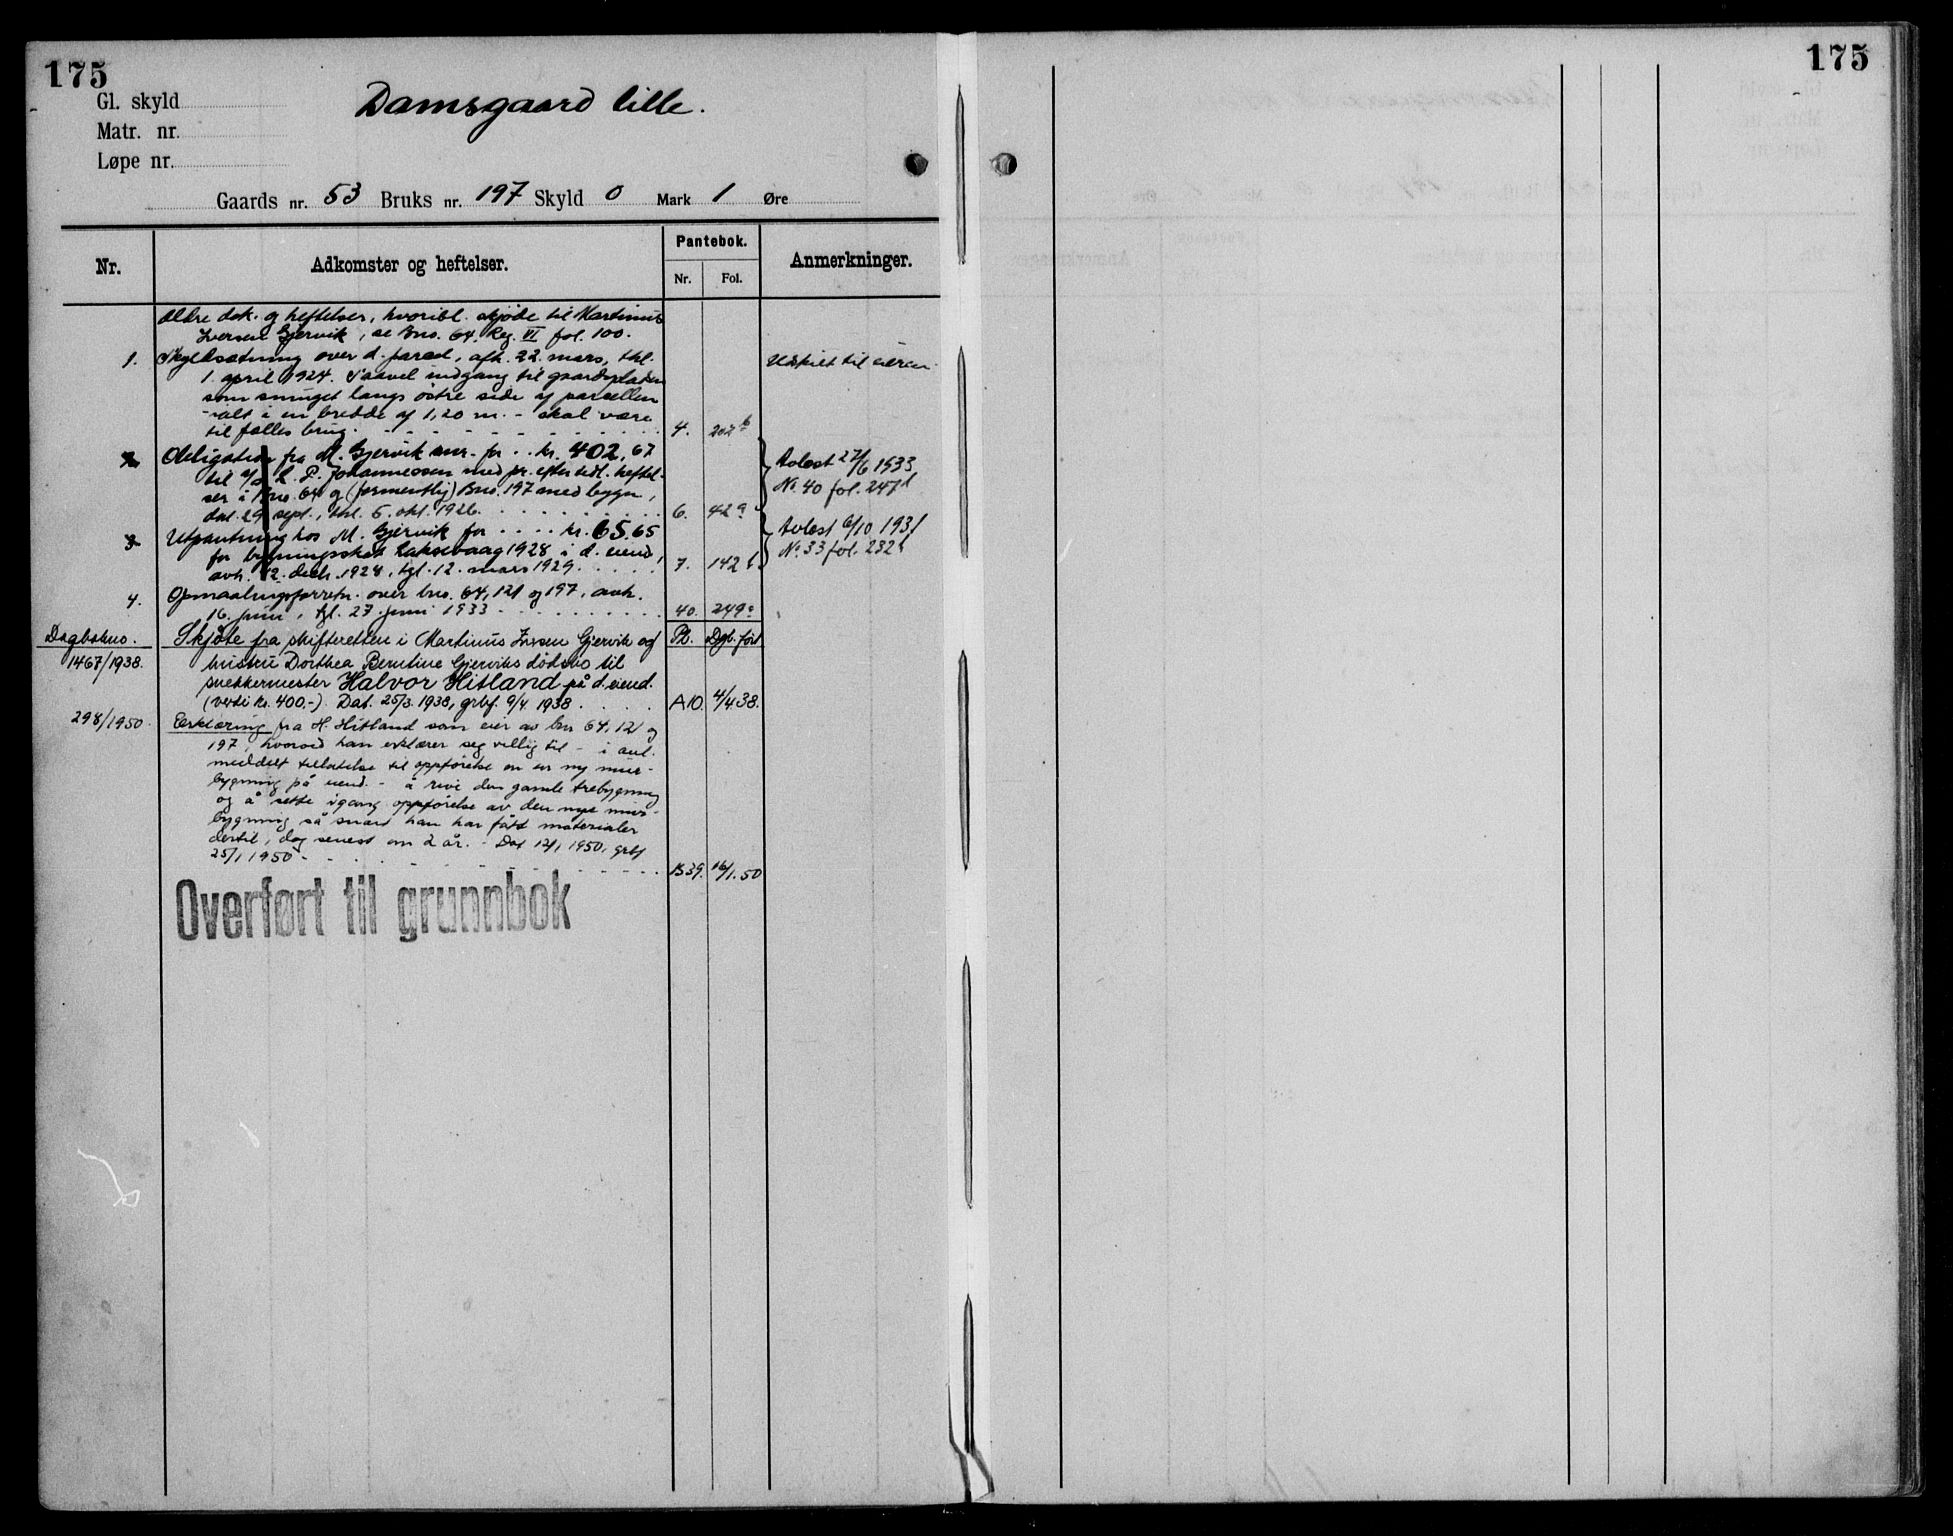 175
Gl. skyld
Damsgaard lille.
Matr. nr.
Løpe nr.
Gaards nr. 53 Bruks nr. 197 Skyld 0 Mark 1 Øre
Nr. Adkomster og heftelser. Pantebok. Anmerkninger.
Nr. Fol.
Ældre dok. og heftelser, hvoribl. skjøde til Martinus
Iversen Gjervik, se Bno. 64. Reg. VI fol. 100.
1. Skyldsætning over d. parcel, afh. 22. mars, thl. Utskilt til eieren.
1. april 1924. Saavel indgang til gaardspladsen
som smuget langs østre side af parcellen
- alt i en bredde af 1,20 m. - skal være
til fælles brug. 4. 202b
2. Obligation fra M. Gjervik for kr. 402,67 Avløst 27/6 1933
til a/s L. P. Johannessen med pr. efter tidl. heftel-
ser i Bno. 64 og (formentlig) Bno. 197 med bygn., No. 40 fol. 247b
dat. 29 sept., thl. 5. okt. 1926. 6. 42a
3. Utpantning hos M. Gjervik for kr. 65.65 Avløst 6/10 1931
for bygningsskat Laksevaag 1928 i d. eiend., No. 33 fol. 232b
avh. 12. decb. 1928, tgl. 12. mars 1929. 7. 142b
4. Opmaalingsforretn. over bno. 64, 121 og 197, avh.
16. juni, tgl. 27. juni 1933 40. 249a
Dagbokno. Skjøte fra skifteretten i Martinus Iversen Gjervik og Pb. Dgb. ført
1467/1938. hustru Dorthea Berntine Gjerviks dødsbo til
snekkermester Halvor Hitland på d. eiend.
(verdi kr. 400.-) Dat. 25/3 1938, grbf. 9/4 1938. A10. 4/4 38.
298/1950. Erklæring fra H. Hitland som eier av bnr 64, 121 og
197, hvorved han erklærer seg villig til - i anl.
meddelt tillatelse til oppførelse en ny mur-
bygning på eiend. - å rive den gamle trebygning
og å sette igang oppførelse av den nye mur-
bygning så snart han har fått materialer
dertil, dog senest om 2 år. - Dat 12/1 1950, grbf
25/1 1950 B39. 16/1. 50
Overført til grunnbok
175